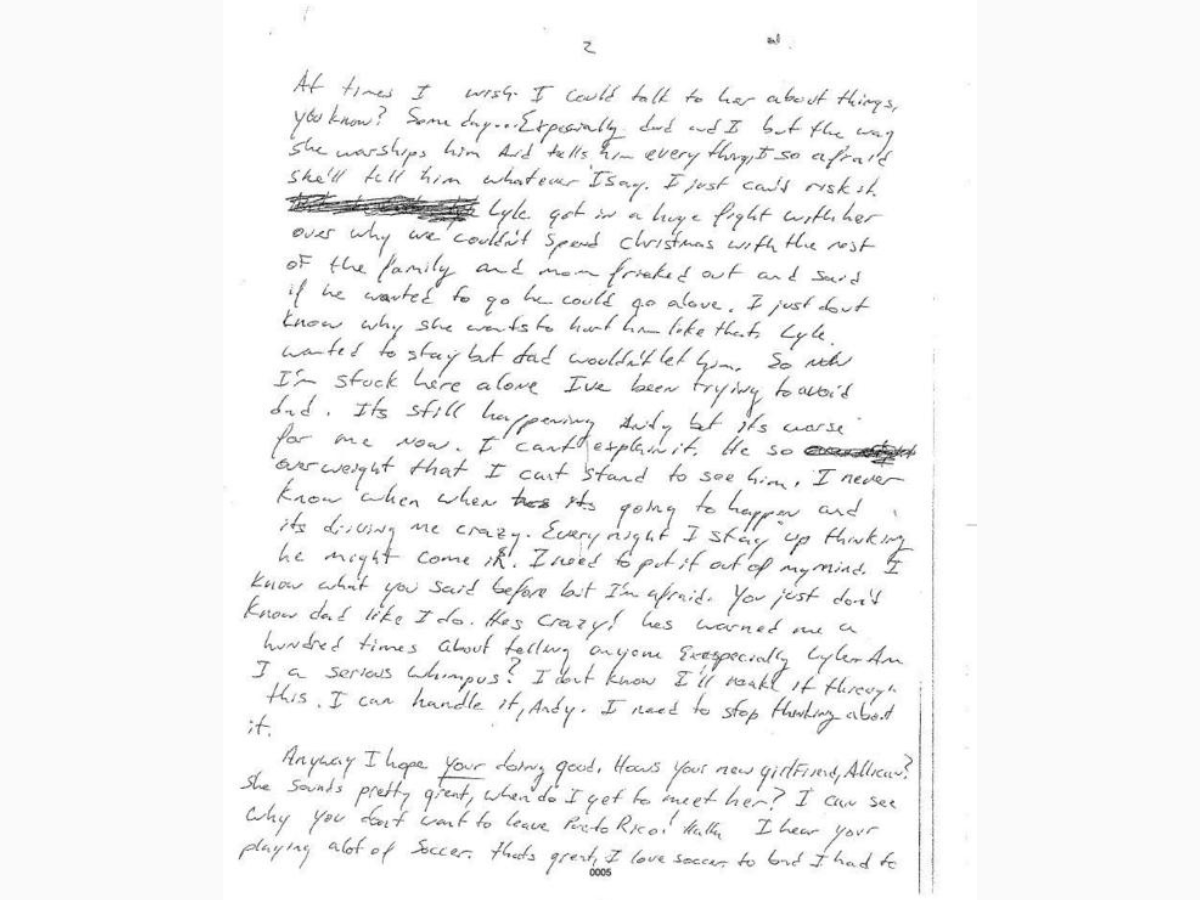 2
At times I wish I could talk to her about things,
you know? Some day... Expecially dad and I but the way
she warships him and tells him everything, I so afraid
she'll tell him whatever I say. I just can't risk it.
Lyle got in a huge fight with her
over why we couldn't spend christmas with the rest
of the family and mom freaked out and said
if he wanted to go he could go alone. I just dont
know why she wants to hurt him like that. Lyle
wanted to stay but dad wouldn't let him. So now
I'm stuck here alone I've been trying to avoid
dad. Its still happening Andy but its worse
for me now. I can't explain it. He so
overweight that I cant stand to see him. I never
know when when its going to happen and
its driving me crazy. Every night I stay up thinking
he might come in. I need to put it out of my mind. I
know what you said before but I'm afraid. You just don't
know dad like I do. Hes crazy! hes warned me a
hundred times about telling anyone Exespecially Lyle. Am
I a serious whimpus? I dont know I'll make it through
this. I can handle it, Andy. I need to stop thinking about
it.
Anyway I hope your doing good. Hows your new girlfriend, Allison?
She sounds pretty great, when do I get to meet her? I can see
why you don't want to leave Puerto Rico! HaHa I hear your
playing alot of Soccer. thats great, I love soccer to bad I had to
0005